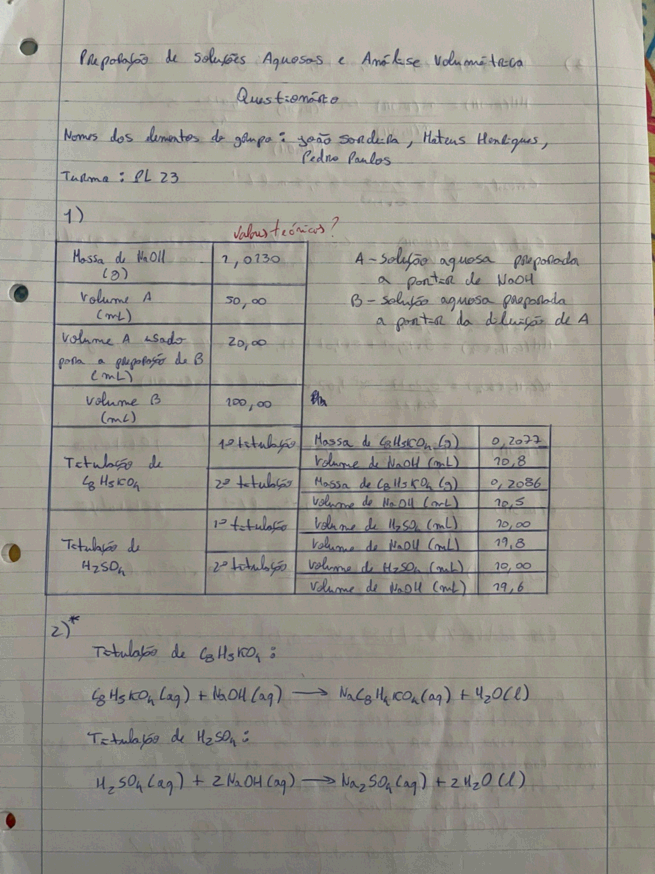 Preparação de Soluções Aquosas e Análise Volumétrica
Questionário
Nomes dos elementos do grupo: João Sordeira, Mateus Henriques,
Pedro Paulos
Turma: PL 23
1)
valores teóricos?
Massa de NaOH (g) 1,0130
Volume A (mL) 50,00
Volume A usado para a preparação de B (mL) 20,00
Volume B (mL) 100,00
A - Solução aquosa preparada
a partir de NaOH
B - Solução aquosa preparada
a partir da diluição de A
Titulação de C8H5KO4
1ª titulação Massa de C8H5KO4 (g) 0,2077
Volume de NaOH (mL) 10,8
2ª titulação Massa de C8H5KO4 (g) 0,2086
Volume de NaOH (mL) 10,5
Titulação de H2SO4
1ª titulação Volume de H2SO4 (mL) 10,00
Volume de NaOH (mL) 19,8
2ª titulação Volume de H2SO4 (mL) 10,00
Volume de NaOH (mL) 19,6
2)*
Titulação de C8H5KO4:
C8H5KO4(aq) + NaOH(aq) → NaC8H4KO4(aq) + H2O(l)
Titulação de H2SO4:
H2SO4(aq) + 2NaOH(aq) → Na2SO4(aq) + 2H2O(l)